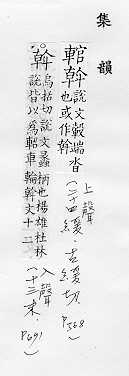 集韻
輨幹說文轂端沓
也或作幹
上聲
(二十四緩·古緩切
P368)
斡烏括切說文蠡柄也楊雄杜林
說皆以為軺車輪斡文十二
入聲
(十三末.
P691)